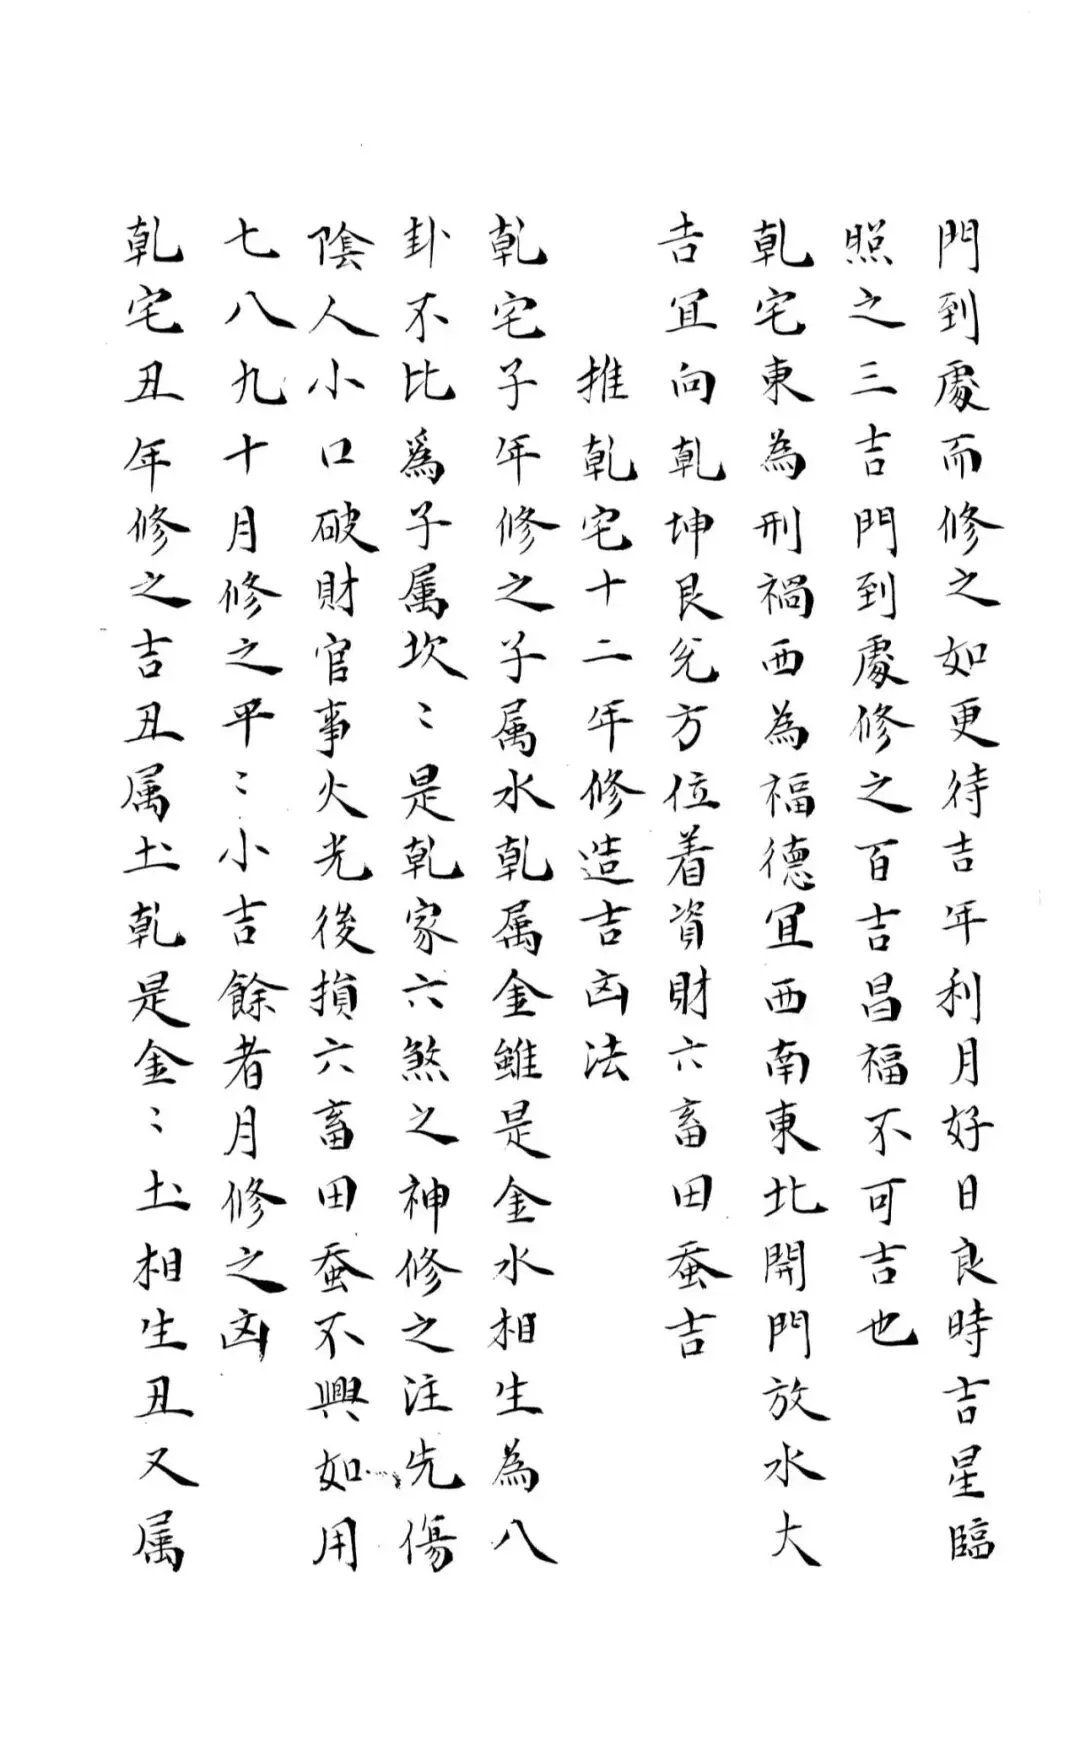 門到處而修之如更待吉年利月好日良時吉星臨
照之三吉門到處修之百吉昌福不可吉也
乹宅東為刑禍西為福德宜西南東北開門放水大
吉宜向乹坤艮兊方位着資財六畜田蚕吉
推乹宅十二年修造吉凶法
乹宅子年修之子属水乹属金雖是金水相生為八
卦不比爲子属坎〻是乹家六煞之神修之注先傷
陰人小口破財官事火光後損六畜田蚕不興如用
七八九十月修之平〻小吉餘者月修之凶
乹宅丑年修之吉丑属土乹是金〻土相生丑又属